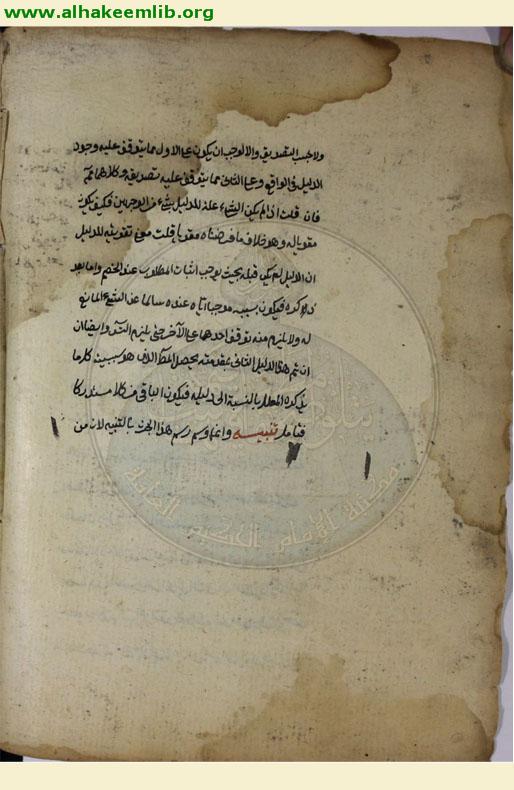 www.alhakeemlib.org
ولا حسب التصديق والا لوجب ان يكون على الاول مما يتوقف عليه وجود
الدليل في الواقع وعلى الثاني مما يتوقف عليه تصديقه وكلاهما ثم
فان قلت اذا لم يكن الشيء علة للدليل بشيء من الوجهين فكيف يكون
مقويا له وهو خلاف ما فرضناه مقويا قلت معنى تقويته للدليل
ان الدليل لم يكن قبله بحيث يوجب اثبات المطلوب عند الخصم واما بعد
ذكره فيكون بسببه موجبا اياه عنده سالما عن المانع
له ولا يلزم منه توقف احدهما على الآخر حتى يلزم وايضا ان
ان تم هذا الدليل الثاني بمقدمته يحصل هو بسببه كلما
يذكره المعلل بالنسبة الى دليله فيكون الباقي مستدركا
فتامل تنبيه وانما وسم رسم هذا البحث بالتنبيه لان من
مكتبة الإمام الحكيم العامة